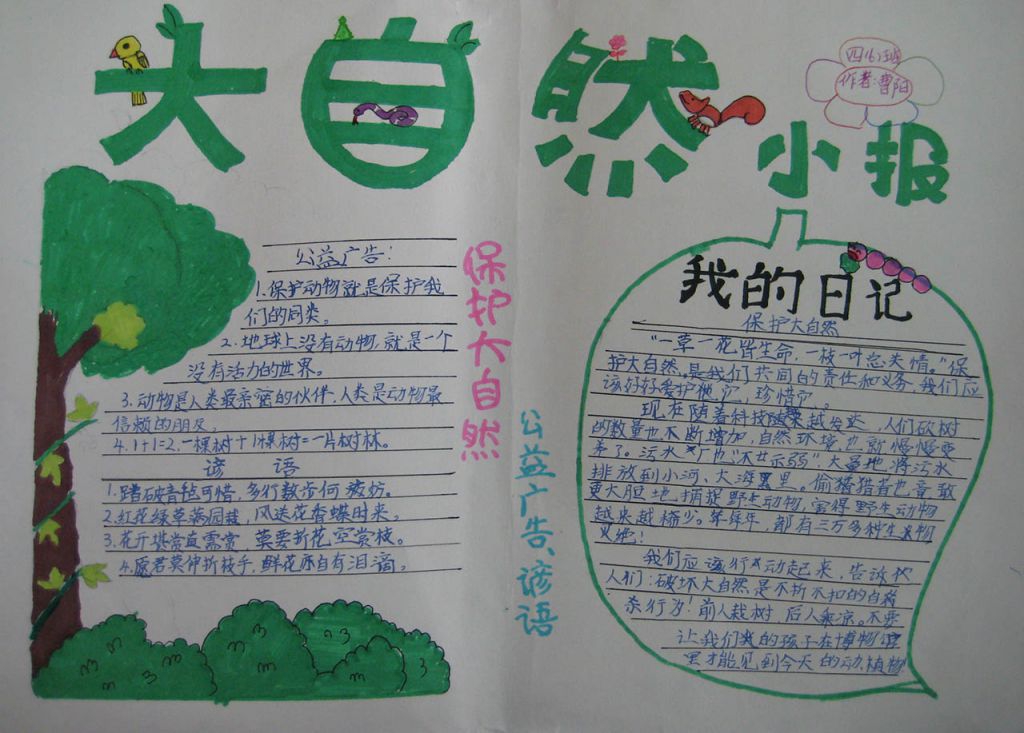 大自然
小报
作者:曹阳
公益广告:
1.保护动物就是保护我
们的同类。
2.地球上没有动物,就是一个
没有活力的世界。
3.动物是人类最亲密的伙伴,人类是动物最
信赖的朋友。
4.1+1=2,一棵树+1棵树=一片树林。
谚语
1.踏破青毯可惜,多行数步何妨。
2.红花绿草满园栽,风送花香蝶自来。
3.花开堪赏直需赏,莫要折花空赏枝。
4.愿君莫伸折枝手,鲜花亦自有泪滴。
保护大自然
公益广告、谚语
我的日记
保护大自然
“一草一花皆生命,一枝一叶总关情。”保
护大自然,是我们共同的责任和义务。我们应
该好好爱护它,珍惜它。
现在随着科技越来越发达,人们砍树
的数量也不断增加,自然环境也就慢慢变
差了。污水厂也“不甘示弱”大量地将污水
排放到小河、大海里。偷猎猎者也竟敢
更大胆地捕捉野生动物,害得野生动物
越来越稀少。每年,都有三万多种生物
灭绝!
我们应该行动起来,告诉
人们:破坏大自然是不折不扣的自
杀行为!前人栽树 后人乘凉。不要
让我们的孩子在博物馆
里才能见到今天的动植物